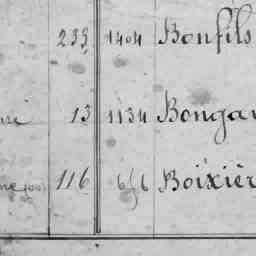 233 1404 Bonfils
13 1134 Bongar
116 616 Boixièr